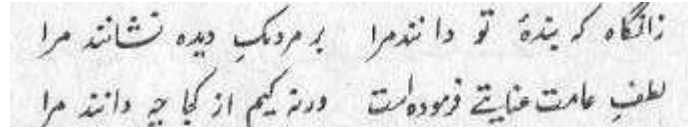 زانگاه که بندهٔ تو دانند مرا بر مردمکِ دیده نشانند مرا
لطفِ عامت عنایتے فرموده است ورنه کیم از کجا چه دانند مرا